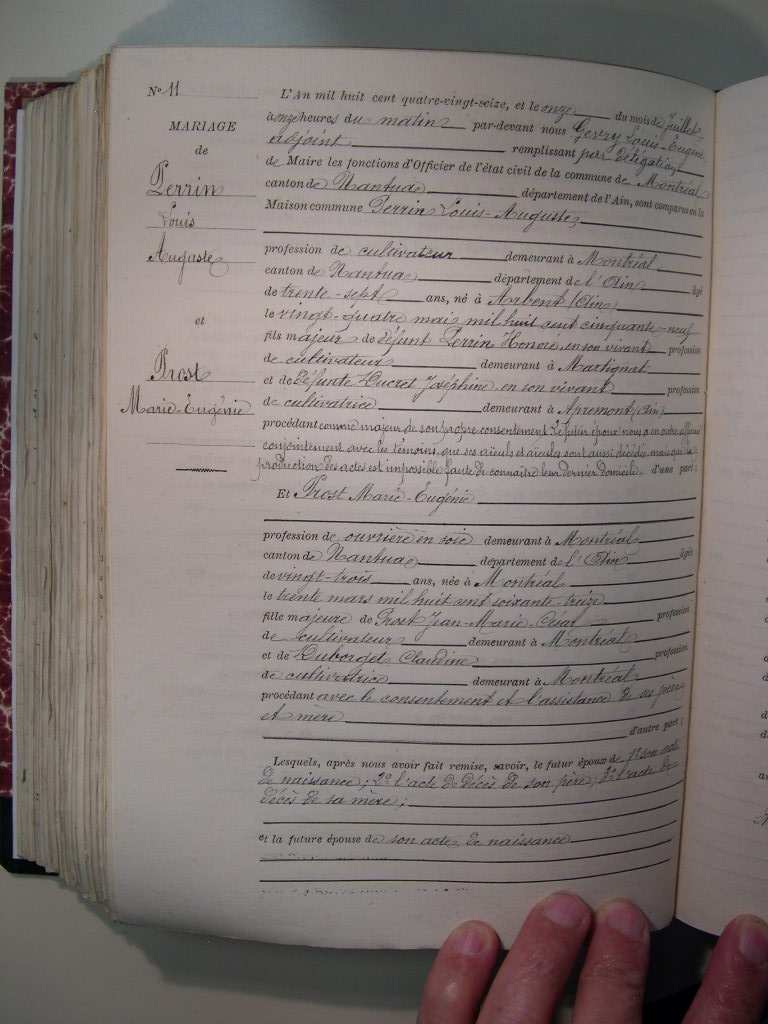 N° 11
MARIAGE
de
Perrin
Louis
Auguste
et
Prost
Marie-Eugénie
L'An mil huit cent quatre-vingt-seize, et le onze du mois de Juillet
à onze heures du matin par-devant nous Louis-Eugène
adjoint remplissant par délégation
de Maire les fonctions d'Officier de l'état civil de la commune de Montréal
canton de Nantua département de l'Ain, sont comparus en la
Maison commune Perrin Louis-Auguste,
profession de cultivateur demeurant à Montréal
canton de Nantua département de l'Ain âgé
de trente-sept ans, né à Arbent (Ain)
le vingt-quatre mai mil huit cent cinquante-neuf
fils majeur de défunt Perrin Honoré en son vivant profession
de cultivateur demeurant à Martignat
et de défunte Ducret Joséphine en son vivant profession
de cultivatrice demeurant à Apremont (Ain)
procédant comme majeur de son propre consentement Le futur époux nous a en outre affirmé
conjointement avec les témoins, que ses aïeuls et aïeules sont aussi décédés, mais que la
production des actes est impossible faute de connaître leur dernier domicile d'une part;
Et Prost Marie-Eugénie
profession de ouvrière en soie demeurant à Montréal
canton de Nantua département de l'Ain âgée
de vingt-trois ans, née à Montréal
le trente mars mil huit cent soixante-treize
fille majeure de Prost Jean-Marie profession
de cultivateur demeurant à Montréal
et de Claudine profession
de cultivatrice demeurant à Montréal
procédant avec le consentement et l'assistance de ses père
et mère
d'autre part;
Lesquels, après nous avoir fait remise, savoir, le futur époux de 1° son acte
de naissance; 2° l'acte de décès de son père; 3° l'acte de
décès de sa mère;
et la future épouse de son acte de naissance